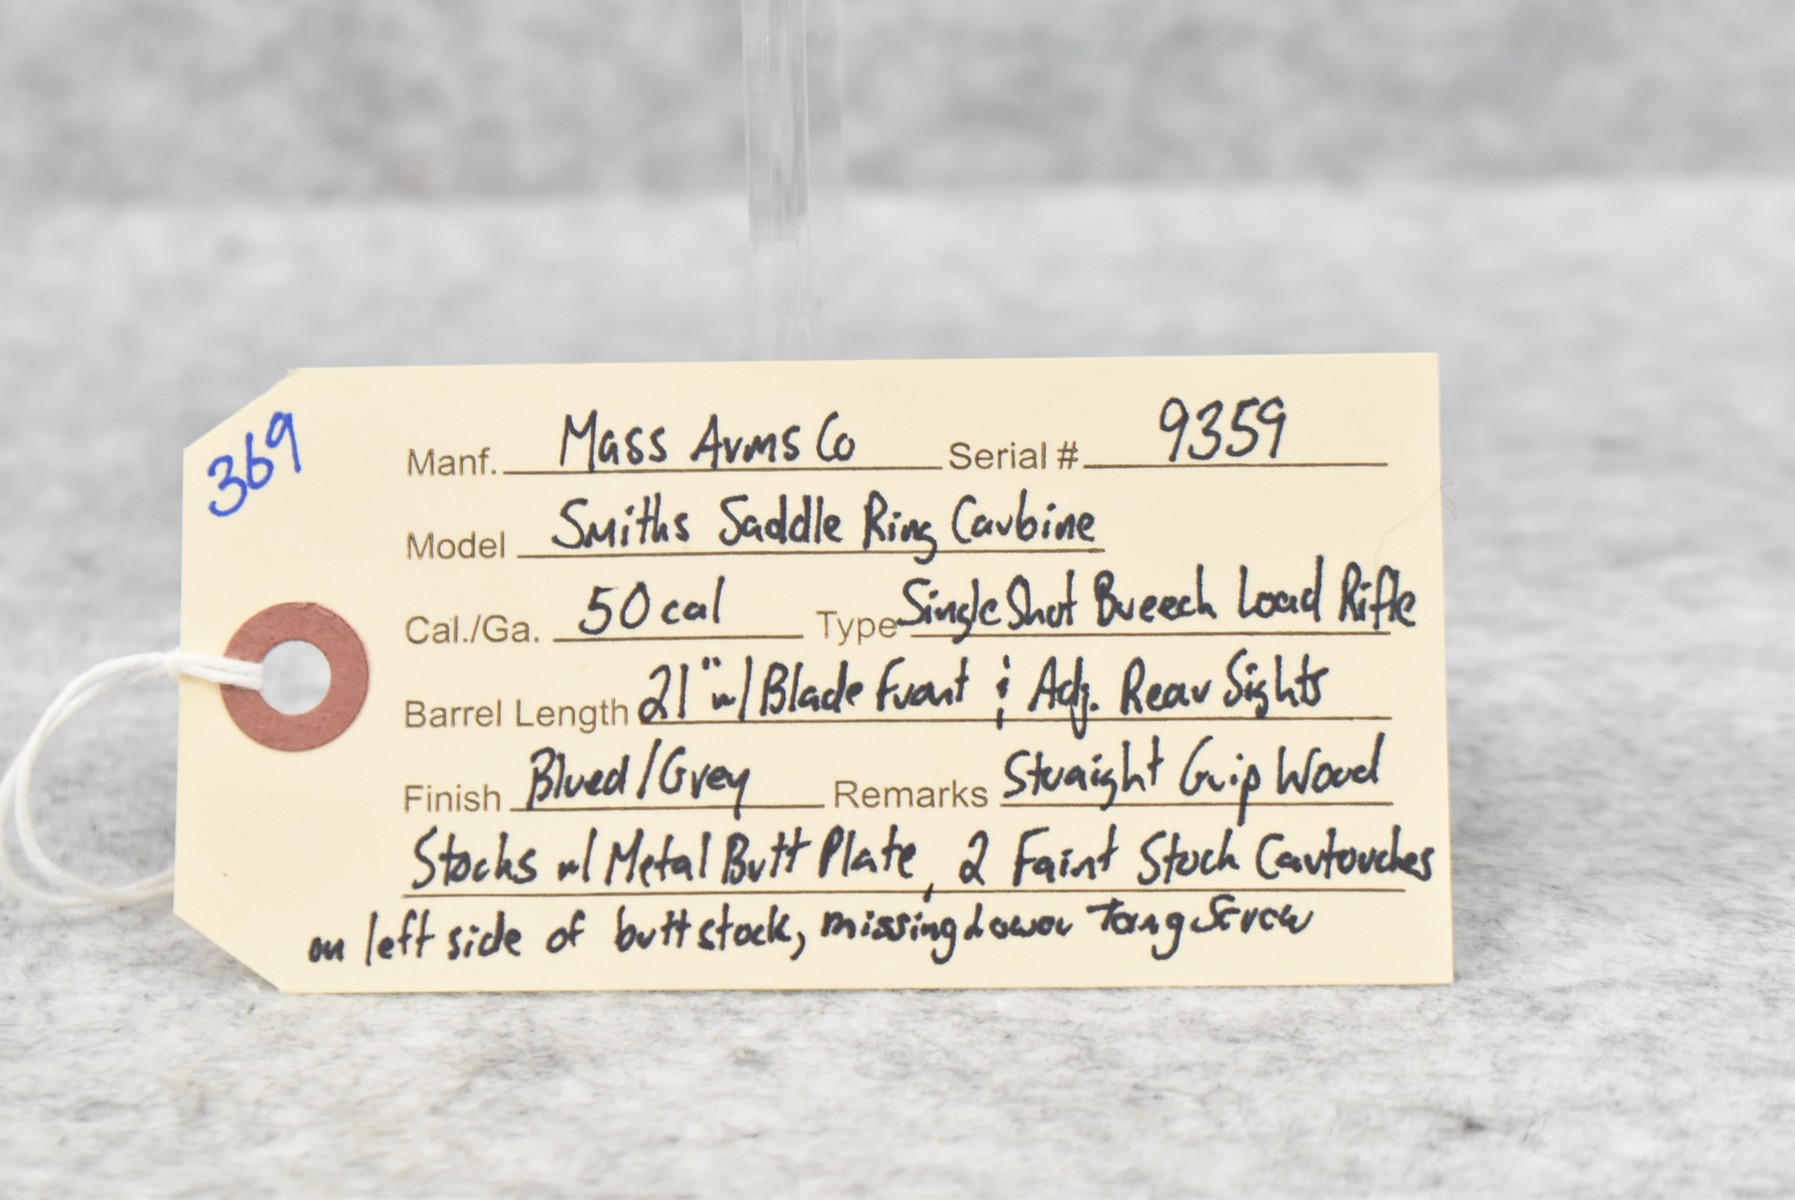 369
Manf. Mass Arms Co Serial # 9359
Model Smiths Saddle Ring Carbine
Cal./Ga. 50 cal Type Single Shot Breech Load Rifle
Barrel Length 21" w/ Blade Front & Adj. Rear Sights
Finish Blued/Grey Remarks Straight Grip Wood
Stocks w/ Metal Butt Plate, 2 Faint Stock Cartouches
on left side of butt stock, missing Lower Tang Screw